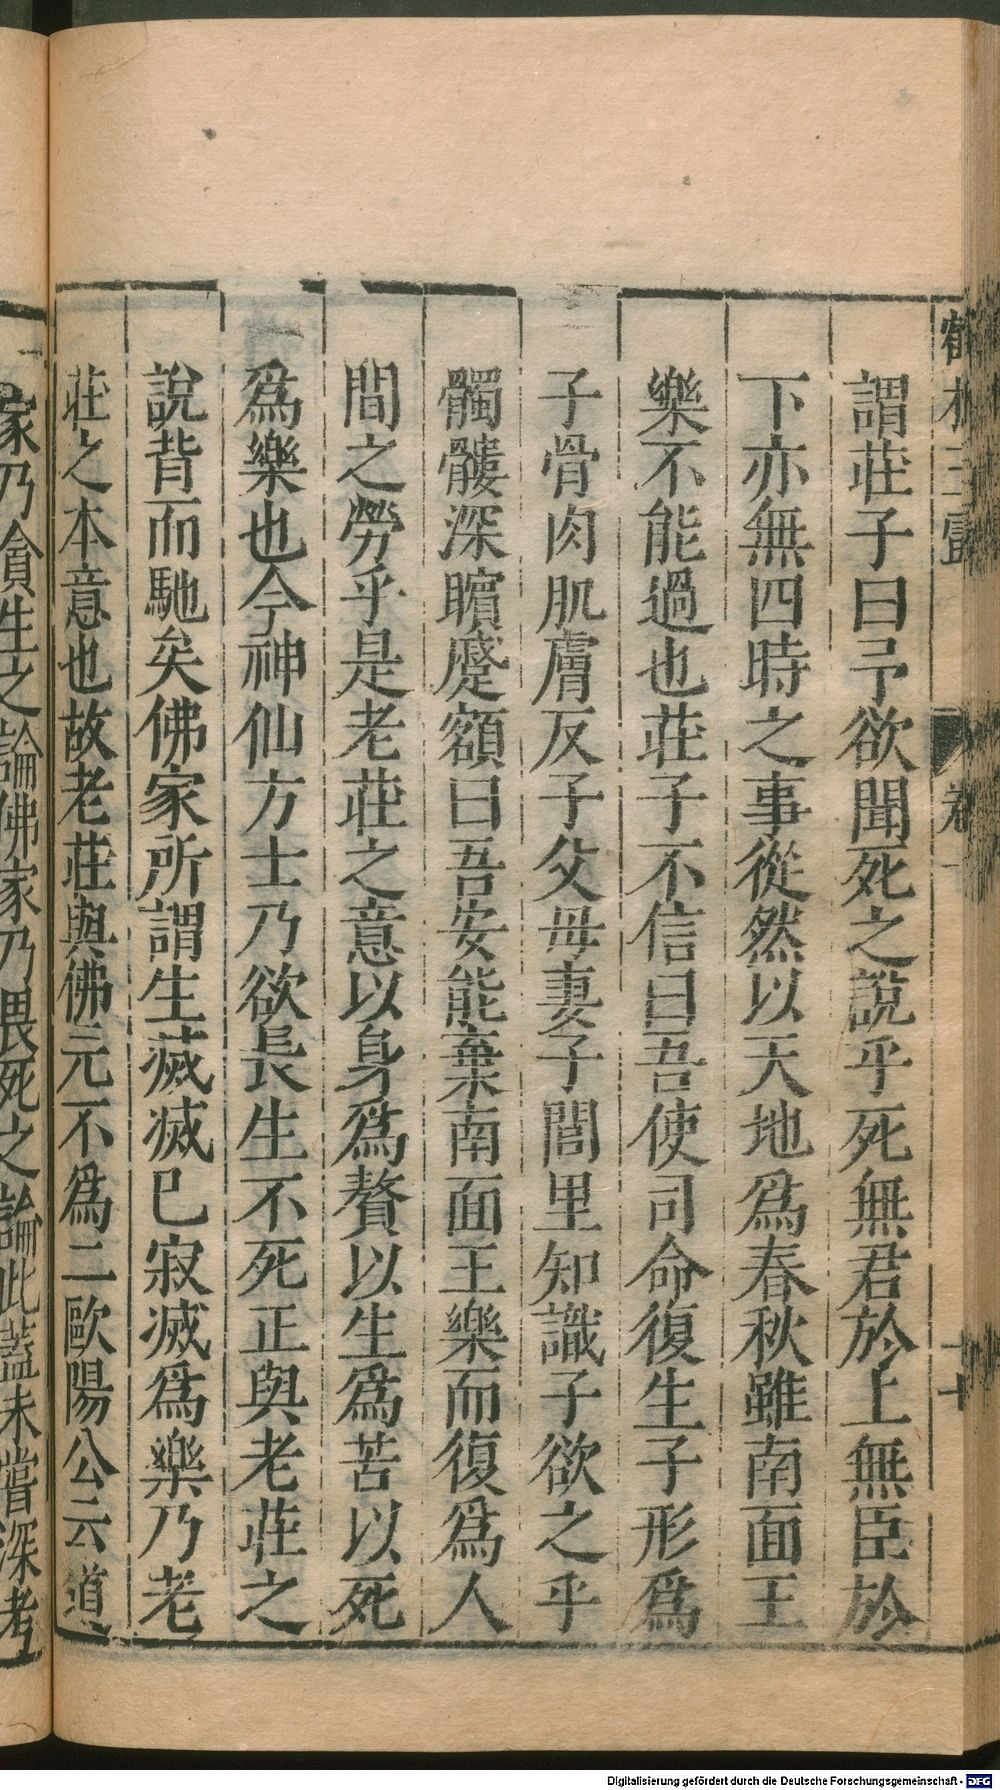 鶴林玉露 卷 十
謂莊子曰予欲聞死之說乎死無君於上無臣於
下亦無四時之事從然以天地爲春秋雖南面王
樂不能過也莊子不信曰吾使司命復生子形爲
子骨肉肌膚反子父母妻子閭里知識子欲之乎
髑髏深矉蹙額曰吾安能棄南面王樂而復爲人
間之勞乎是老莊之意以身爲贅以生爲苦以死
爲樂也今神仙方士乃欲長生不死正與老莊之
說背而馳矣佛家所謂生滅滅已寂滅爲樂乃老
莊之本意也故老莊與佛元不爲二歐陽公云道
家乃貪生之論佛家乃畏死之論此蓋未嘗深考
Digitalisierung gefördert durch die Deutsche Forschungsgemeinschaft - DFG